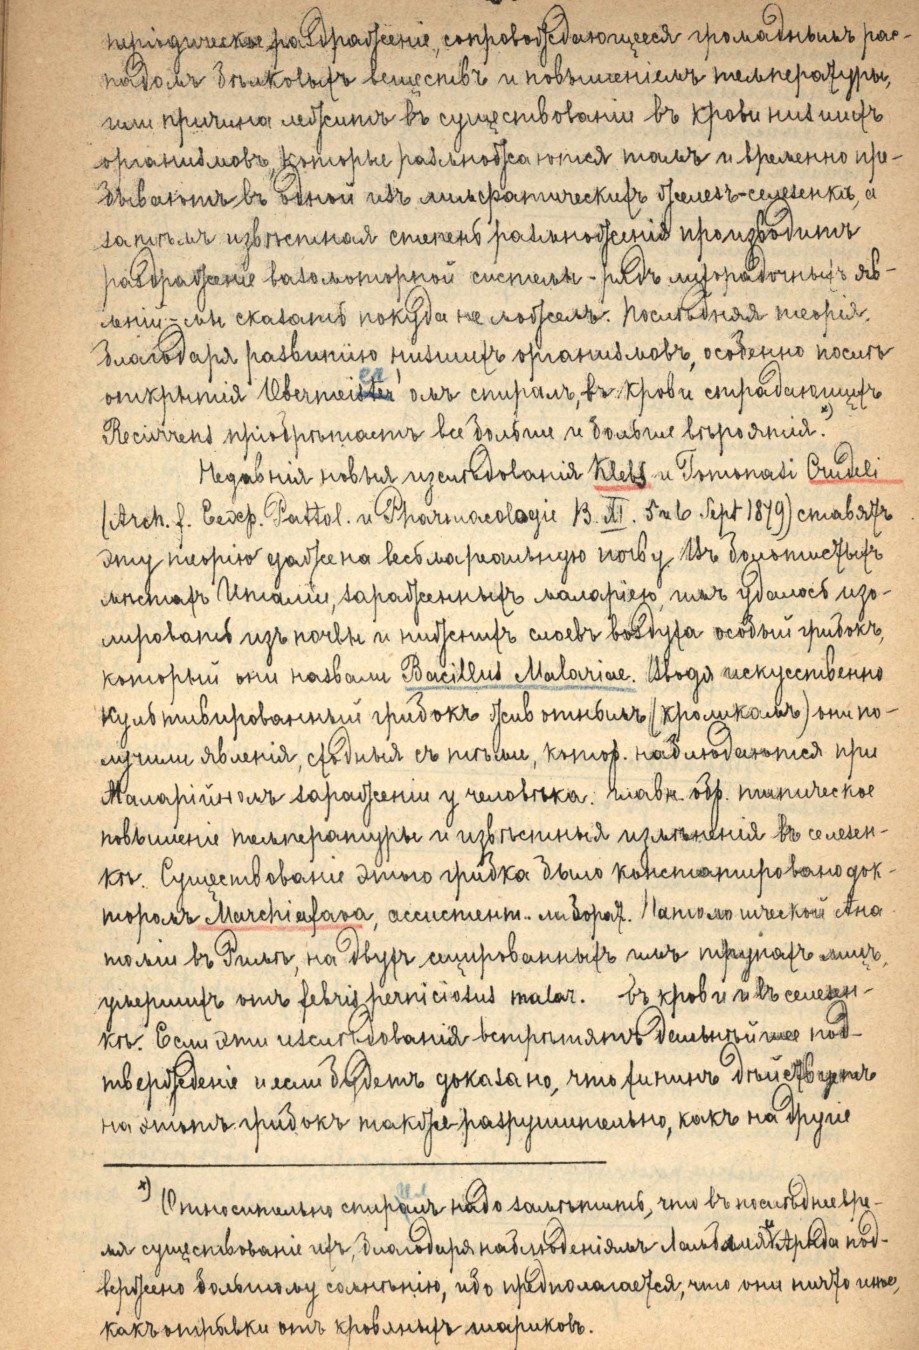 періодическое раздраженіе, сопровождающееся громаднымъ рас-
падомъ бѣлковыхъ веществъ и повышеніемъ температуры,
или причина лежитъ въ существованіи въ крови низшихъ
организмовъ, которые размножаются тамъ и временно пре-
бываютъ въ одной изъ лимфатическихъ железъ-селезенкѣ, а
затѣмъ извѣстная степень размноженія производитъ
раздраженіе вазомоторной системы - рядъ лихорадочныхъ яв-
леній - мы сказать покуда не можемъ. Послѣдняя теорія,
благодаря развитію низшихъ организмовъ, особенно послѣ
открытія Obermeier'омъ спирилъ, въ крови страдающихъ
Recurrens пріобрѣтаетъ все больше и больше вѣроятія.*)
Недавнія новыя изслѣдованія Klebs и Tommasi Crudeli
(Arch. f. Exp. Pathol. и Pharmacologie B. XI. 5 и 6 Sept 1879) ставятъ
эту теорію даже на весьма реальную почву. Изъ болотистыхъ
мѣстахъ Италіи, зараженныхъ маларіею, имъ удалось изо-
лировать изъ почвы и нижнихъ слоевъ воздуха особый грибокъ,
который они назвали Bacillus Malariae. Вводя искусственно
культивированный грибокъ животнымъ (кроликамъ) они по-
лучили явленія, сходныя съ тѣми, котор. наблюдаются при
Маларійномъ зараженіи у человѣка: главн. обр. типическое
повышеніе температуры и извѣстныя измѣненія въ селезен-
кѣ. Существованіе этого грибка было констатировано док-
торомъ Marchiafava, ассистент. лаборат. Патологической Ана
томіи въ Римѣ, на двухъ сецированныхъ имъ трупахъ лицъ,
умершихъ отъ febris perniciosus malar. въ крови и въ селезен-
кѣ. Если эти изслѣдованія встрѣтятъ дальнѣйшее под-
твержденіе и если будетъ доказано, что хининъ дѣйствуетъ
на этотъ грибокъ также разрушительно, какъ на другіе
*) Относительно спирилъ надо замѣтить, что въ послѣднее вре-
мя существованіе ихъ, благодаря наблюденіямъ и Арнда под-
вержено большому сомнѣнію, ибо предполагается, что они ничто иное,
какъ отрывки отъ кровяныхъ шариковъ.